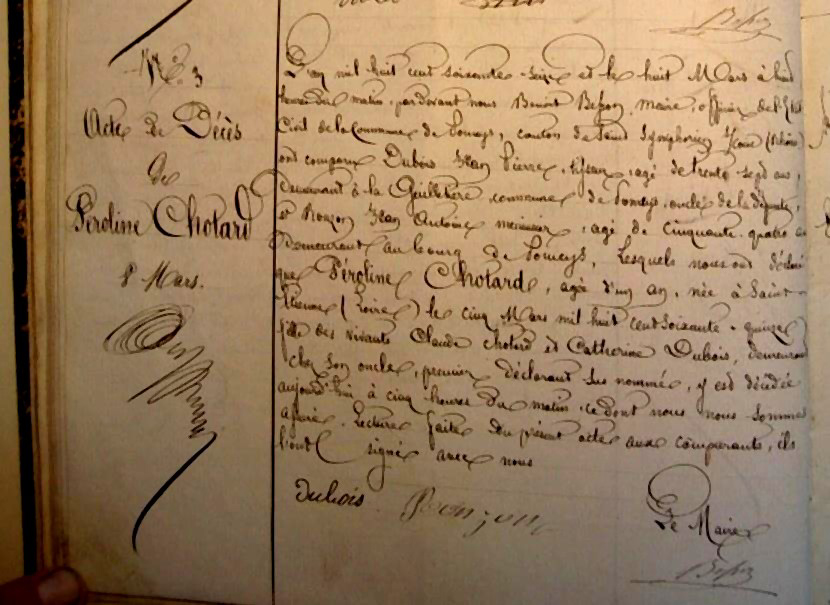 N°. 3
Acte de Décès
de
Péroline Chotard
8 Mars.
L'an mil huit cent soixante-seize et le huit Mars à huit
heures du matin, pardevant nous Benoit Besson, maire, officier de l'Etat
Civil de la Commune de Pomeys, canton de Saint Symphorien (Rhône)
ont comparu Dubois Jean Pierre, agé de trente sept ans,
demeurant à la Guilletière, commune de Pomeys, oncle de la défunte,
et Ronzon Jean Antoine menuisier, agé de cinquante-quatre
demeurant au bourg de Pomeys, Lesquels nous ont déclaré
que Péroline Chotard, agée d'un an, née à Saint-
Etienne (Loire) le cinq Mars mil huit cent soixante-quinze,
fille des vivants Claude Chotard et Catherine Dubois, demeurant
chez son oncle, premier déclarant sus nommé, y est décédée
aujourd'hui à cinq heures du matin, ce dont nous nous sommes
assuré. Lecture faite du présent acte aux comparants, ils
l'ont signé avec nous
Dubois Ronzon
Le Maire